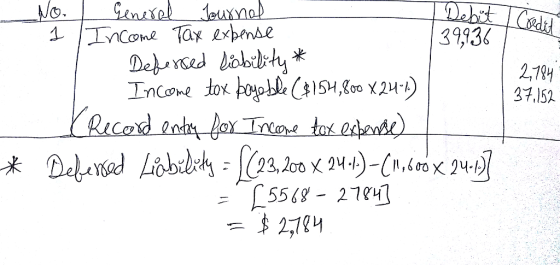 No. General Journal Debit Credit
1 Income Tax expense 39,936
Deferred liability * 2,784
Income tax payable ($154,800 x 24%) 37,152
(Record entry for Income tax expense)
* Deferred Liability = [(23,200 x 24%) - (11,600 x 24%)]
= [5568 - 2784]
= $ 2,784